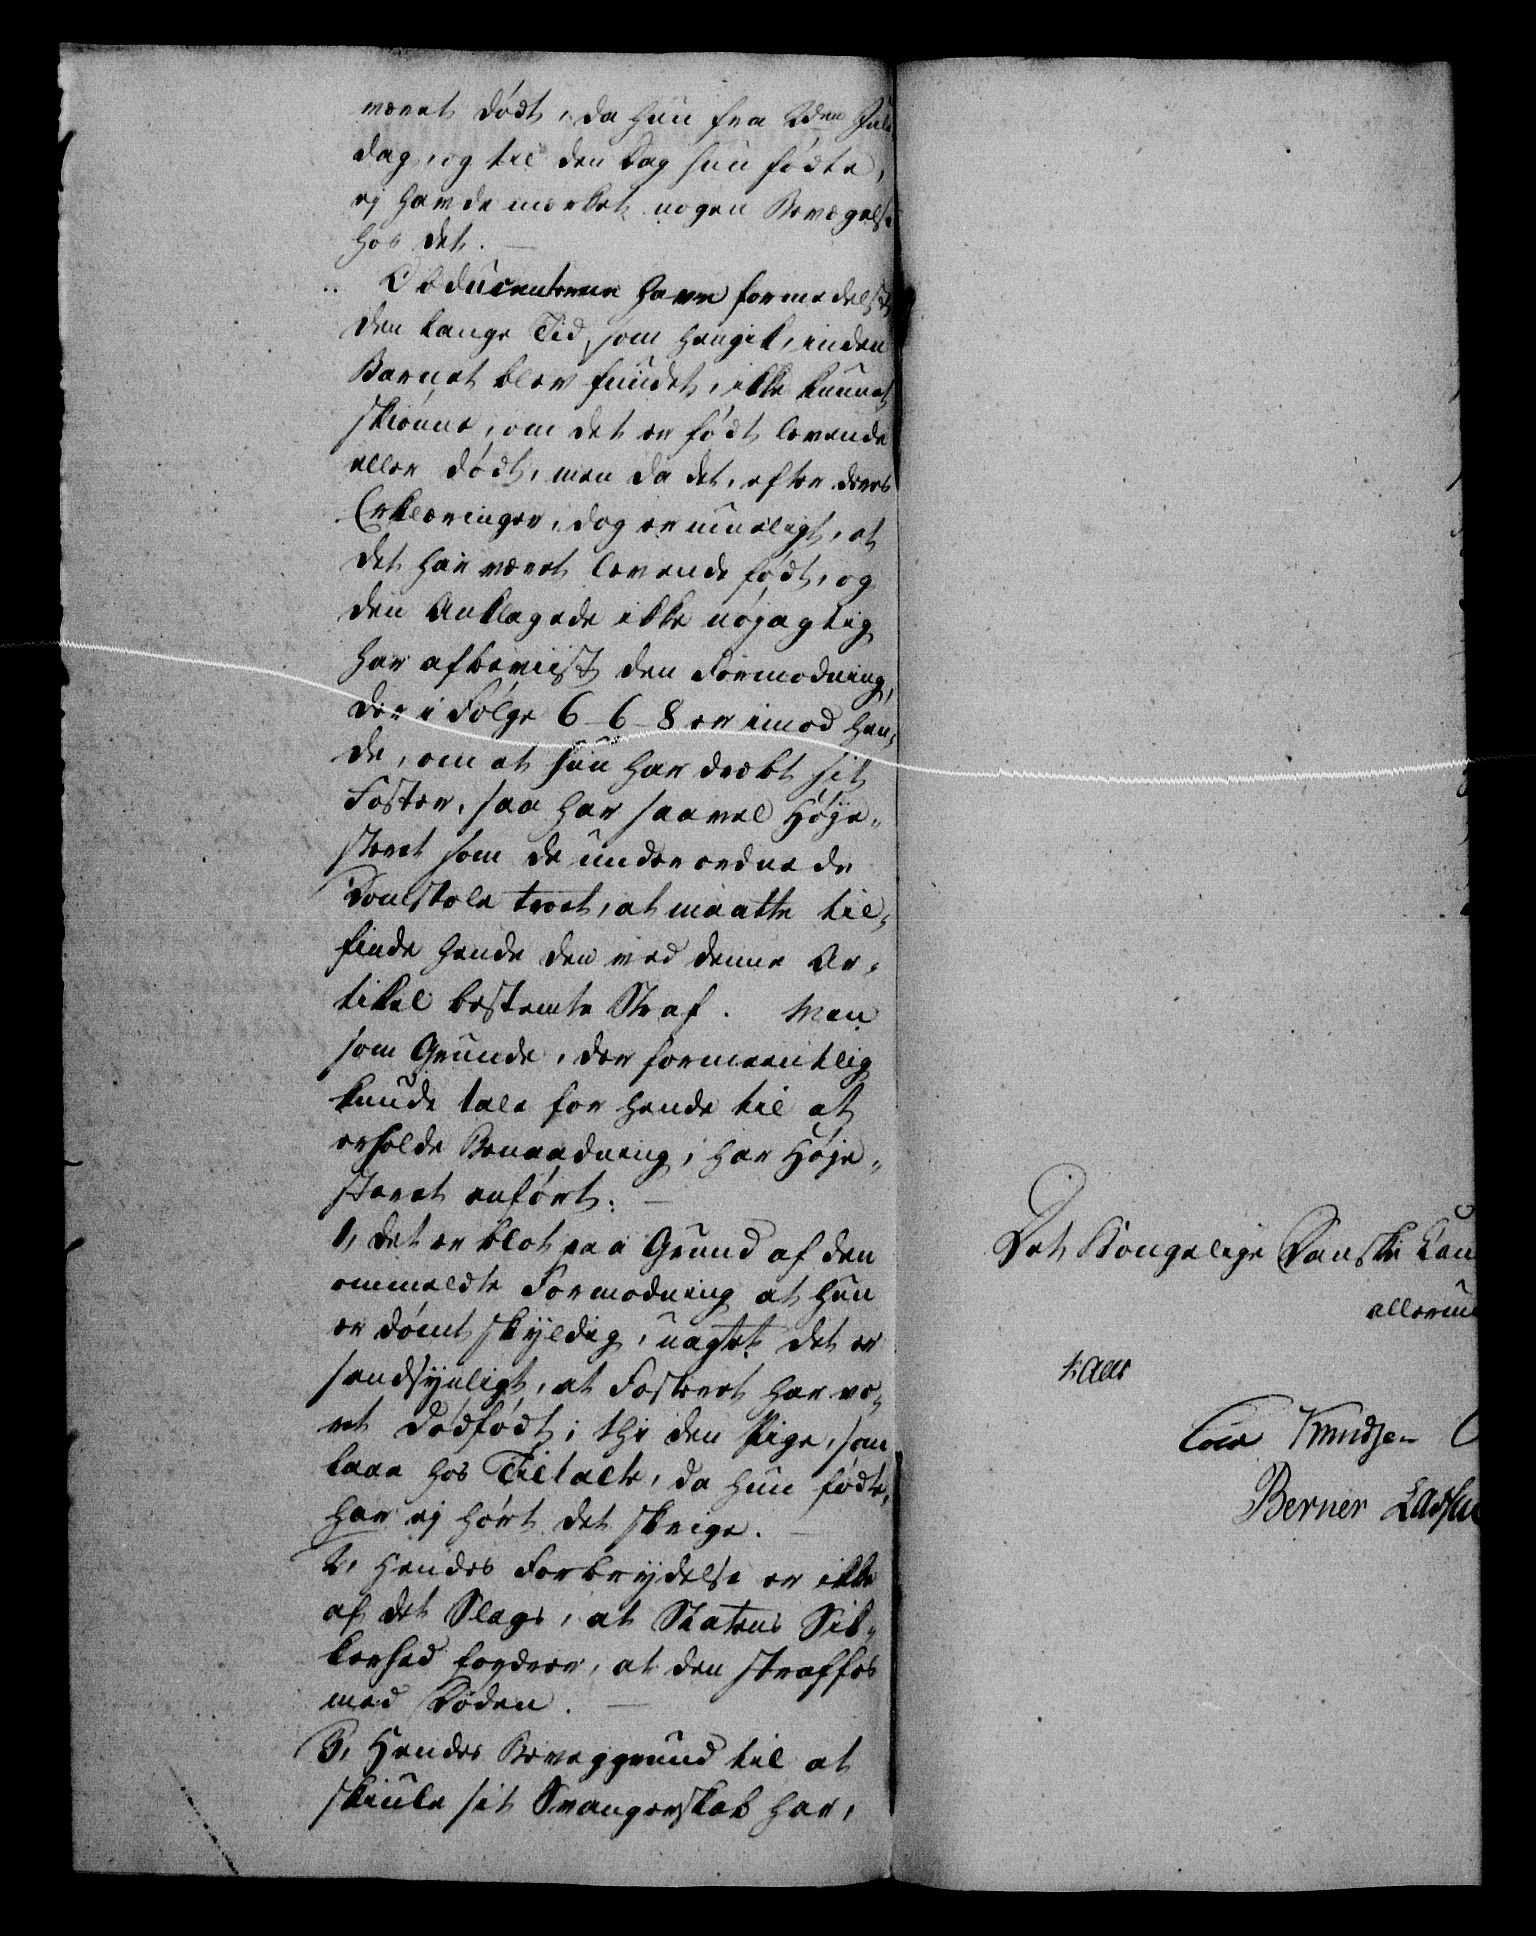 været dødt, da hun fra 2den Jule
dag, og til den Dag hun fødte,
ej havde mærket nogen Bevægelse
hos det. —
Obducenterne have formedelst
den lange Tid, som hengik, inden
Barnet blev fundet, ikke kunnet
skiønne, om det er født levende
eller dødt, men da det, efter deres
Erklæringer, dog er mueligt, at
det har været levende født, og
den Anklagede ikke nøjagtig
har afbeviist den Formodning,
der i Følge 6-6-8 er imod hen-
de, om at hun har dræbt sit
Foster, saa har saavel Høje-
steret som de underordnede
Domstole troet, at maatte til-
finde hende den ved denne Ar-
tikel bestemte Straf. Men
som Grunde, der formeentlig
kunde tale for hende til at
erholde Benaadning, har Høje-
steret anført: —
1, det er blot paa Grund af den
ommeldte Formodning at hun
er dømt skyldig, uagtet det er
sandsynligt, at Fosteret har væ-
ret dødfødt; thi den Pige, som
laae hos Tiltalte, da hun fødte,
har ej hørt det skrige. —
2, Hendes Forbrydelse er ikke
af det Slags, at Statens Sik-
kerhed fordrer, at den straffes
med Døden. —
3, Hendes Bevæggrund til at
skiule sit Svangerskab har,
Det Kongelige Danske Can
allerun
Kaas
Cold Knudsen
Berner Lassen